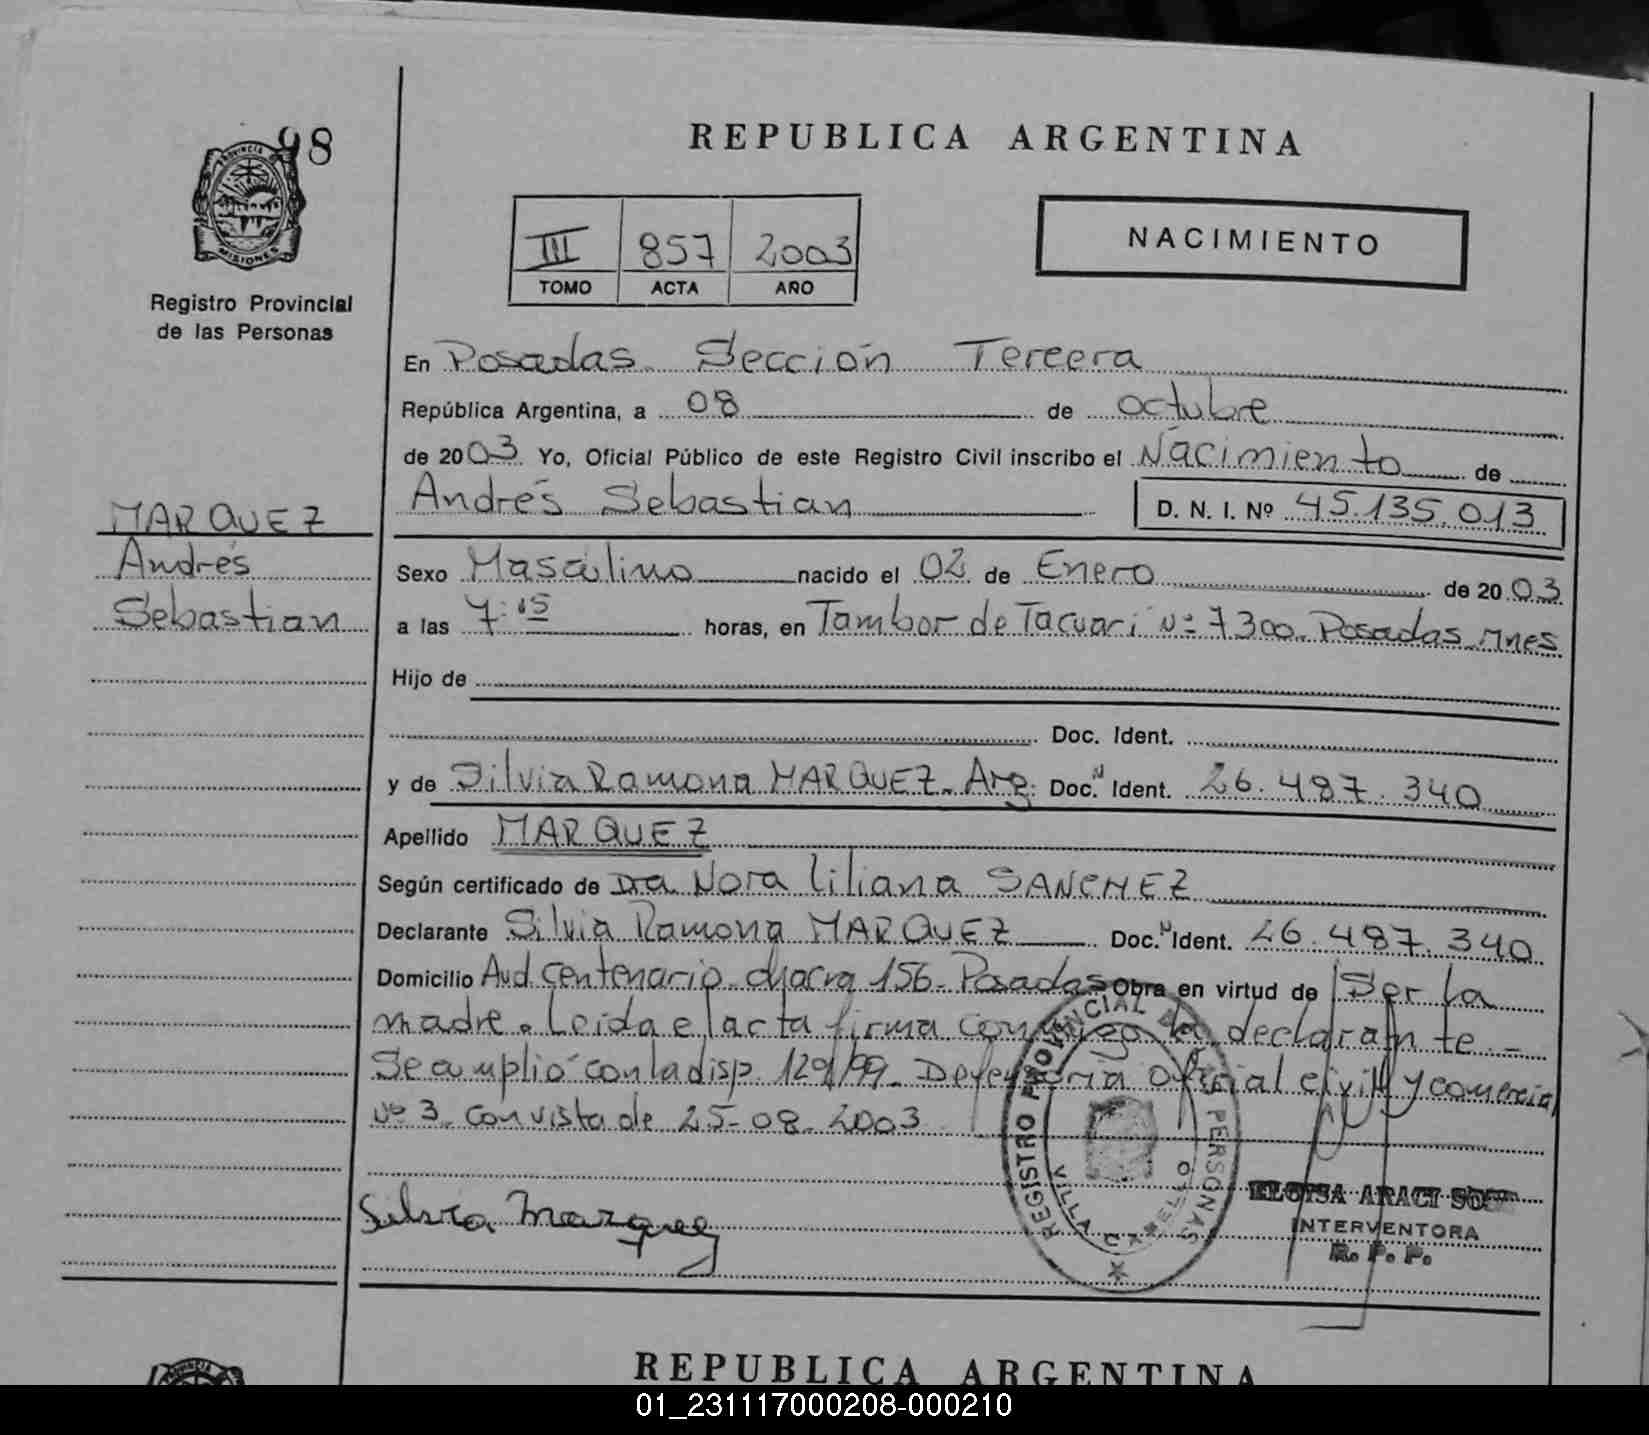 98
PROVINCIA DE
MISIONES
Registro Provincial
de las Personas
MARQUEZ
Andrés
Sebastian
REPUBLICA ARGENTINA
III 857 2003
TOMO ACTA AÑO
NACIMIENTO
En Posadas. Sección Tercera
República Argentina, a 08 de octubre
de 2003 Yo, Oficial Público de este Registro Civil inscribo el Nacimiento de
Andrés Sebastian D. N. I. Nº 45.135.013
Sexo Masculino nacido el 02 de Enero de 2003
a las 7:15 horas, en Tambor de Tacuari nº 7300. Posadas. Mnes
Hijo de
Doc. Ident.
y de Silvia Ramona MARQUEZ. Arg. Doc. N Ident. 26.487.340
Apellido MARQUEZ
Según certificado de Dra. Nora Liliana SANCHEZ
Declarante Silvia Ramona MARQUEZ Doc. N Ident. 26.487.340
Domicilio Avd centenario. chacra 156. Posadas Obra en virtud de Ser la
madre. Leida el acta firma conmigo la declarante.-
Se cumplió con la disp. 129/99. Defensoria Oficial civil y comercial
nº 3. con vista de 25-08-2003
Silvia Marquez
REGISTRO PROVINCIAL DE LAS PERSONAS
VILLA CABELLO
ELOISA ARACI SOSA
INTERVENTORA
R. P. P.
REPUBLICA ARGENTINA
01_231117000208-000210